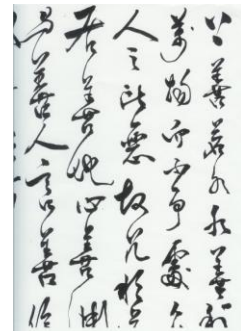 上善若水水善利
萬物而不爭處众
人之所惡故几於
居善地心善淵
与善人言善信